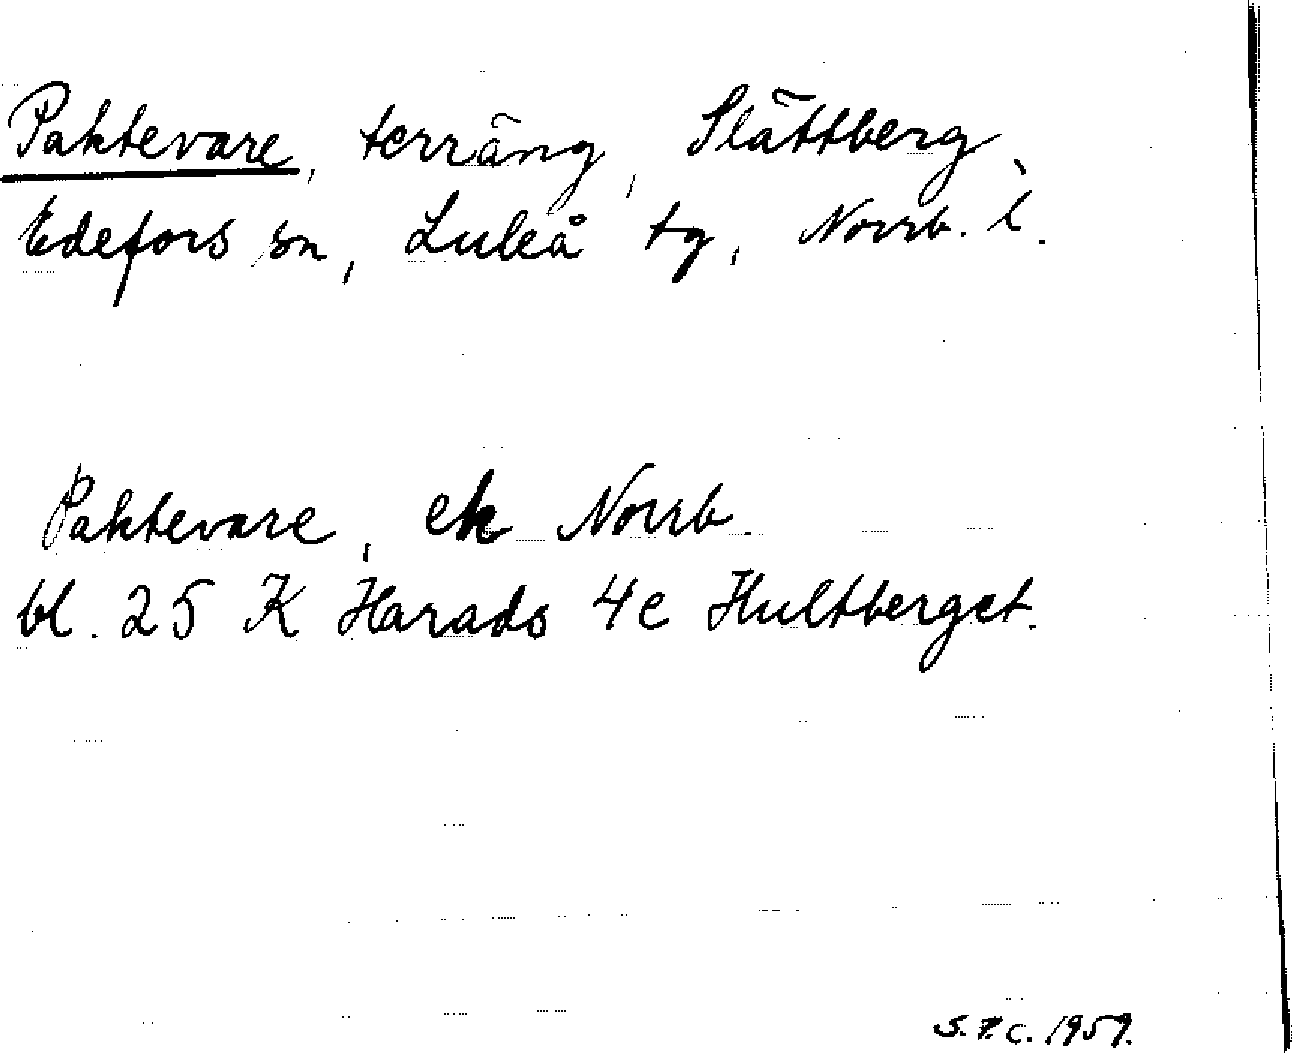 Paktevare, terräng, Slättberg,
Edefors sn, Luleå tg, Norrb. l.
Paktevare, ek Norrb.
bl. 25 K Harads 4c Hultberget.
S.F.C. 1959.